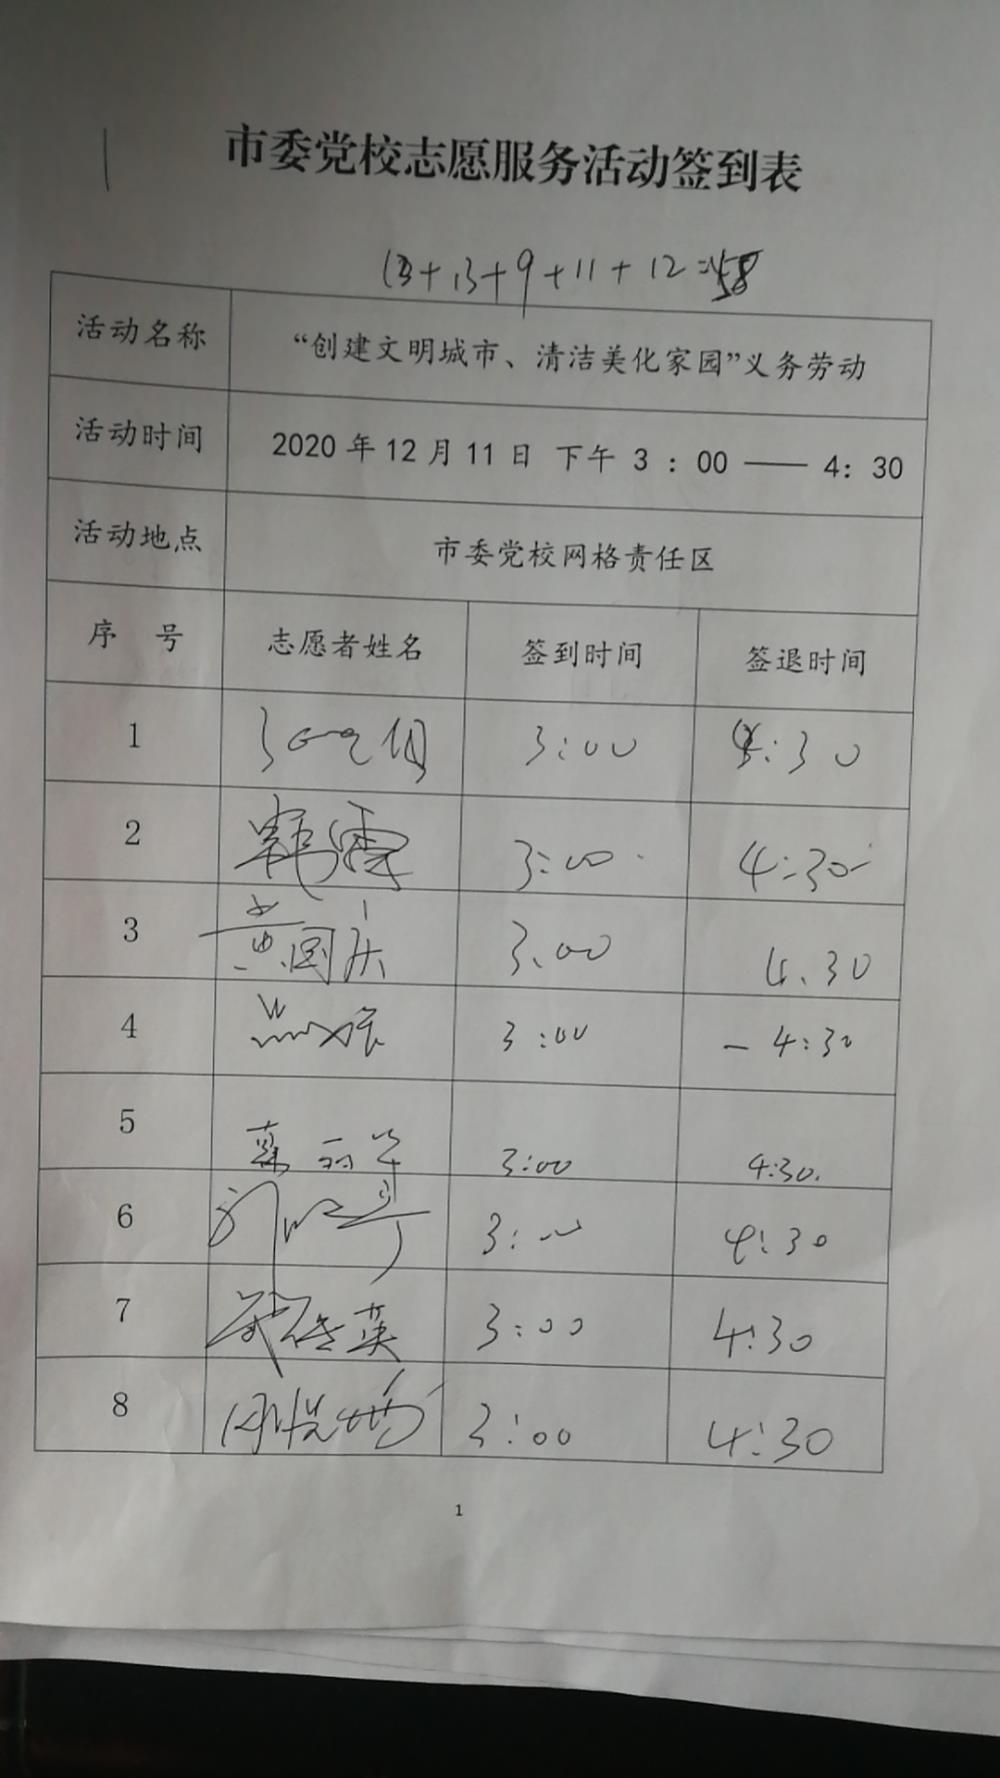 市委党校志愿服务活动签到表
13+13+9+11+12=58
活动名称 “创建文明城市、清洁美化家园”义务劳动
活动时间 2020年12月11日 下午 3 : 00 —— 4: 30
活动地点 市委党校网格责任区
序 号 志愿者姓名 签到时间 签退时间
1 3:00 4:30
2 韩霞 3:00 4:30
3 黄国庆 3.00 4.30
4 3:00 - 4:30
5 3:00 4:30.
6 3:00 4:30
7 3:00 4:30
8 周悦梅 3:00 4:30
1